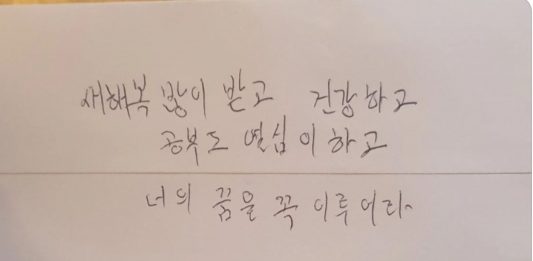 새해복 많이 받고 건강하고
공부도 열심이하고
너의 꿈을 꼭 이루어라~